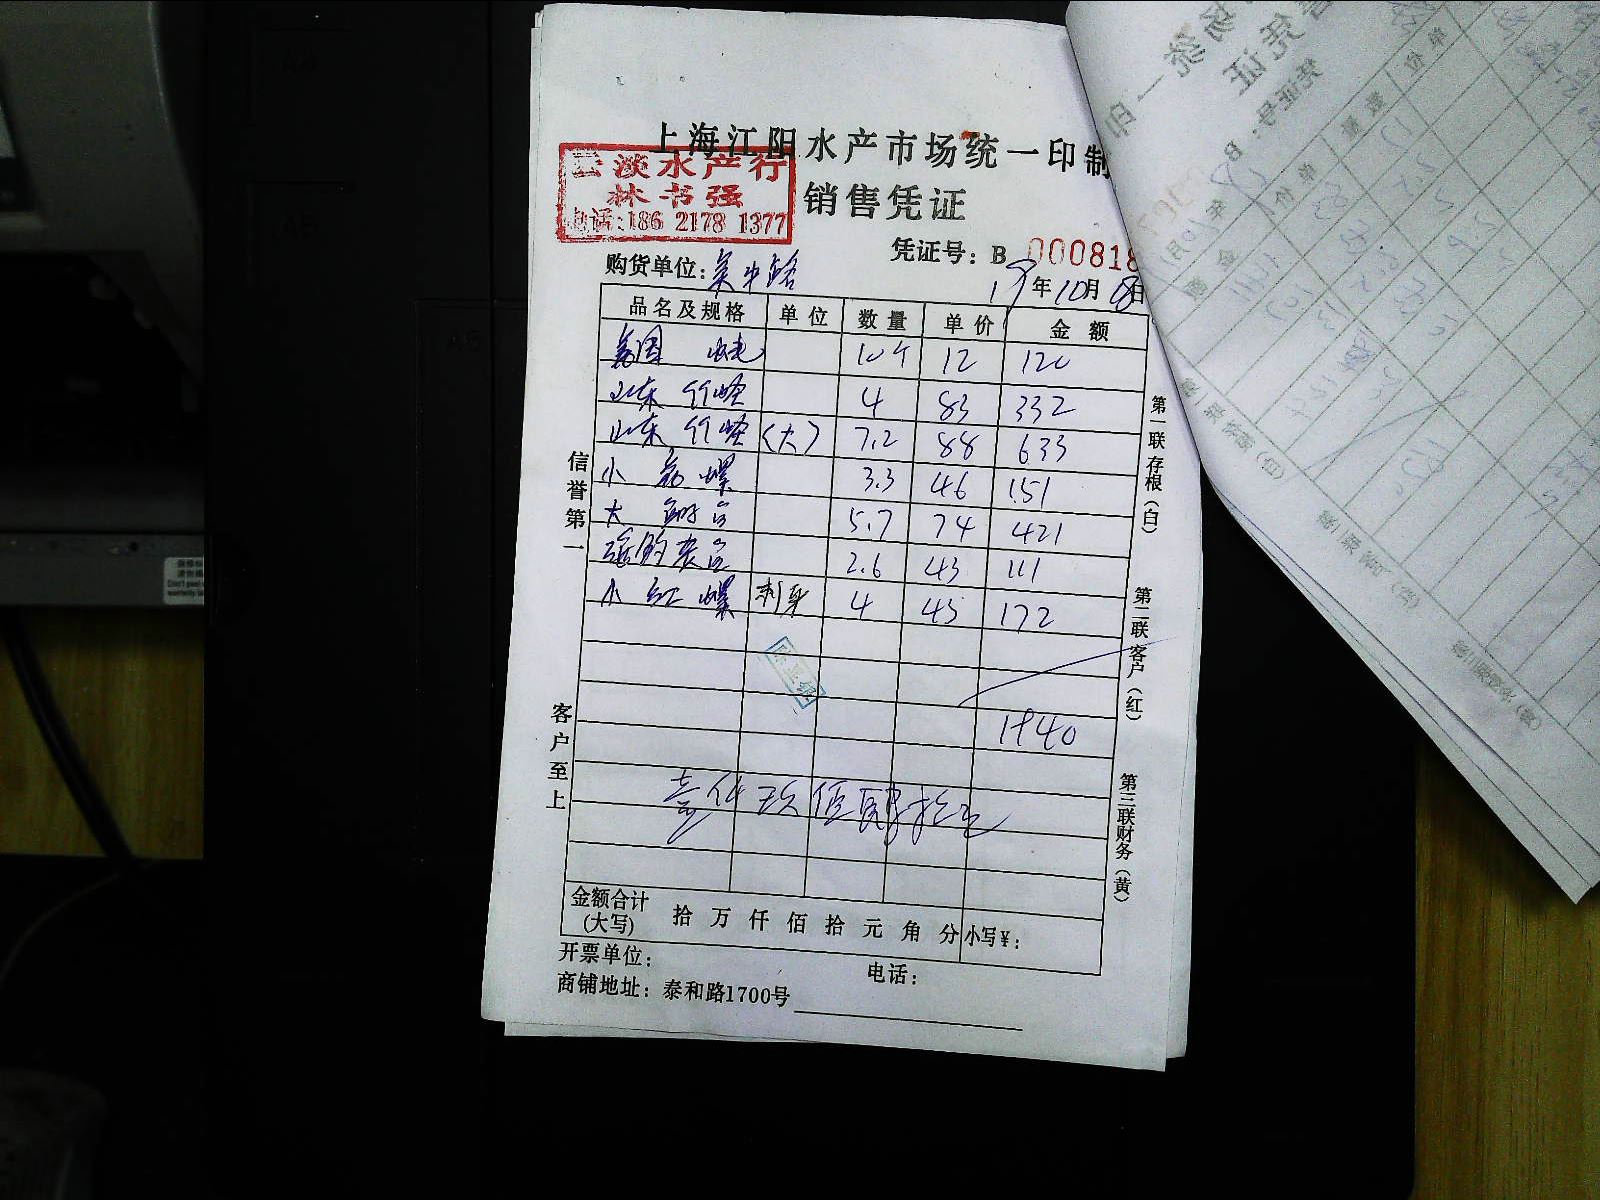 上海江阳水产市场统一印制
云淡水产行
林书强
电话:186 2178 1377
销售凭证
凭证号: B 000818
购货单位: 吴中路
19年10月08日
品名及规格 单位 数量 单价 金额
美国 10个 12 120
山东 竹蛏 4 83 332
山东 竹蛏 (大) 7.2 88 633
小 螺 3.3 46 151
大 5.7 74 421
2.6 43 111
小 红 螺 刺身 4 43 172
1940
壹仟玖佰肆拾元
金额合计
(大写) 拾 万 仟 佰 拾 元 角 分 小写¥:
开票单位: 电话:
商铺地址: 泰和路1700号
信誉第一
客户至上
第一联 存根 (白)
第二联 客户 (红)
第三联 财务 (黄)